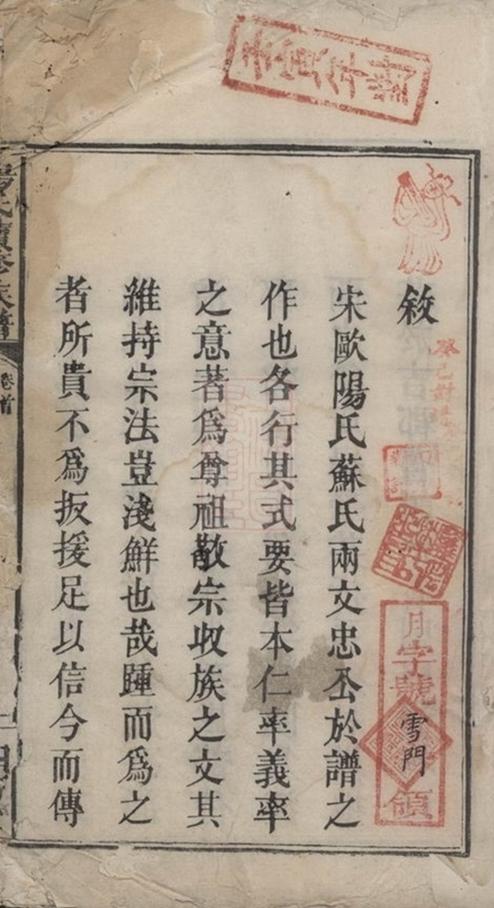 敘
宋歐陽氏蘇氏兩文忠公於譜之
作也各行其式要皆本仁率義率
之意著爲尊祖敬宗收族之文其
維持宗法豈淺鮮也哉踵而爲之
者所貴不爲扳援足以信今而傳
月字號
雪門
領
氏續修族譜
卷首